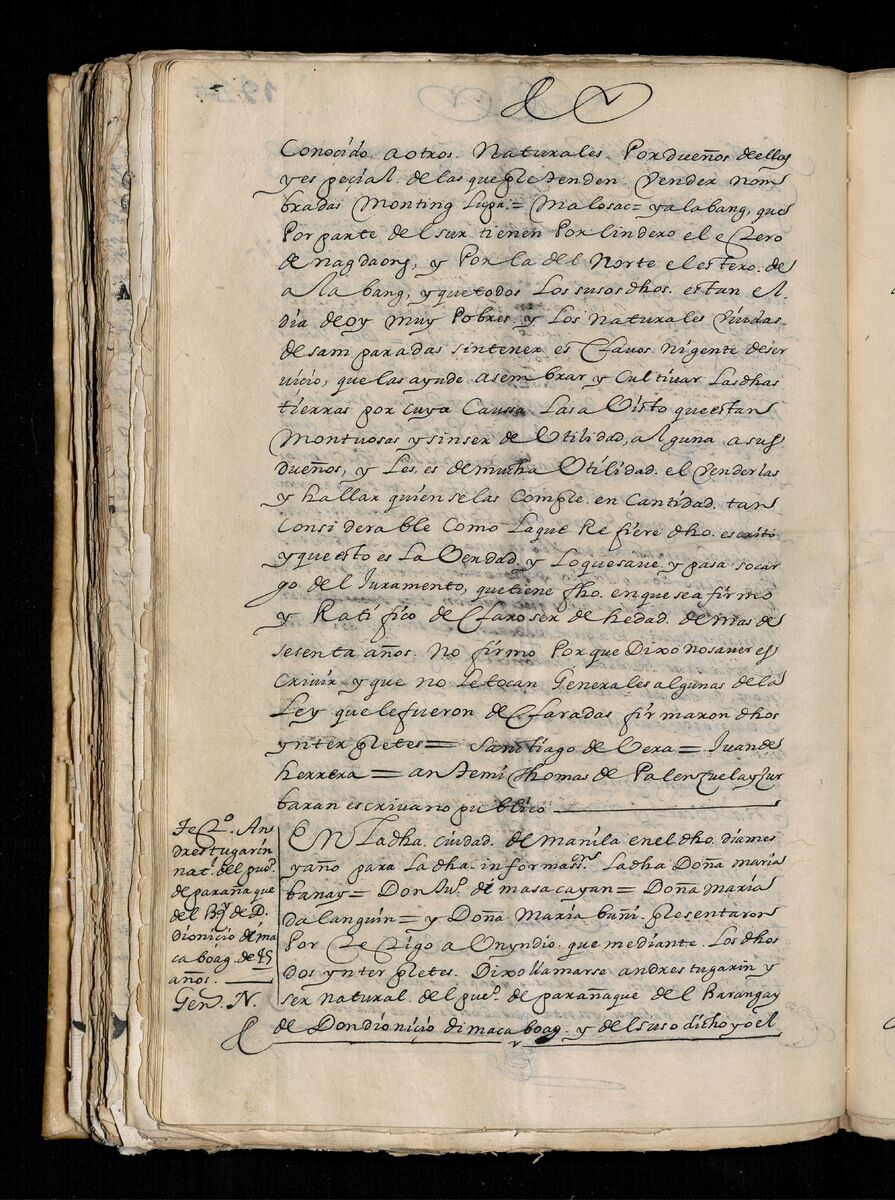 Conocido. a otros. Naturales. Por dueños de ellas
y es peçial. de las que pretenden. Vender nom
bradas Monting Lupa = Malosac = y alabang, que
Por parte del sur tienen Por lindero el estero
de nagdaong, y Por la del Norte el estero. de
alabang, y que todos Los susos dhos. estan el
dia de oy muy Pobres y Los Naturales Viudas
desam paradas sin tener esclavos ni gente de ser
uicio, que las ayude a sembrar y Cultivar Las dhas
tierras por cuya Caussa Las a Visto que estan
Montuosas y sin ser de Utilidad, alguna a sus
dueños, y Les es de mucha Utilidad. el Venderlas
y hallar quien se las Compre. en Cantidad. tan
Considerable Como La que Refiere dho. escrito
y que esto es La Verdad. y Lo que save y pasa so car
go del Juramento, que tiene fho. en que se a firmo
y Ratifico declaro ser de hedad. de mas de
sesenta años. No firmo Porque Dixo no saver es
crivir y que no Le tocan Generales algunas de la
Ley que le fueron declaradas firmaron dhos
ynterpretes = Santiago de Vera = Juan de
herrera = ante mi Thomas de Palenzuela y Zur
baran escrivano publico
Tesº. An
dres tugarin
natl. del pueº.
de parañaque
del Bgy de D.
dionicio de ma
caboag. de 45
años.
Gen. N.
En La dha. ciudad. de manila en el dho. dia mes
y año para La dha. informassn. La dha Doña maria
banay = Don Juº. de masacayan = Doña Maria
Dalanguin = y Doña Maria buñi. presentaron
Por testigo a Un yndio. que mediante. Los dhos
dos ynterpretes. Dixo llamarse andres tugarin y
ser natural. del pueº. de parañaque del Barangay
de Don dionicio dimacaboag. y del suso dicho yo el